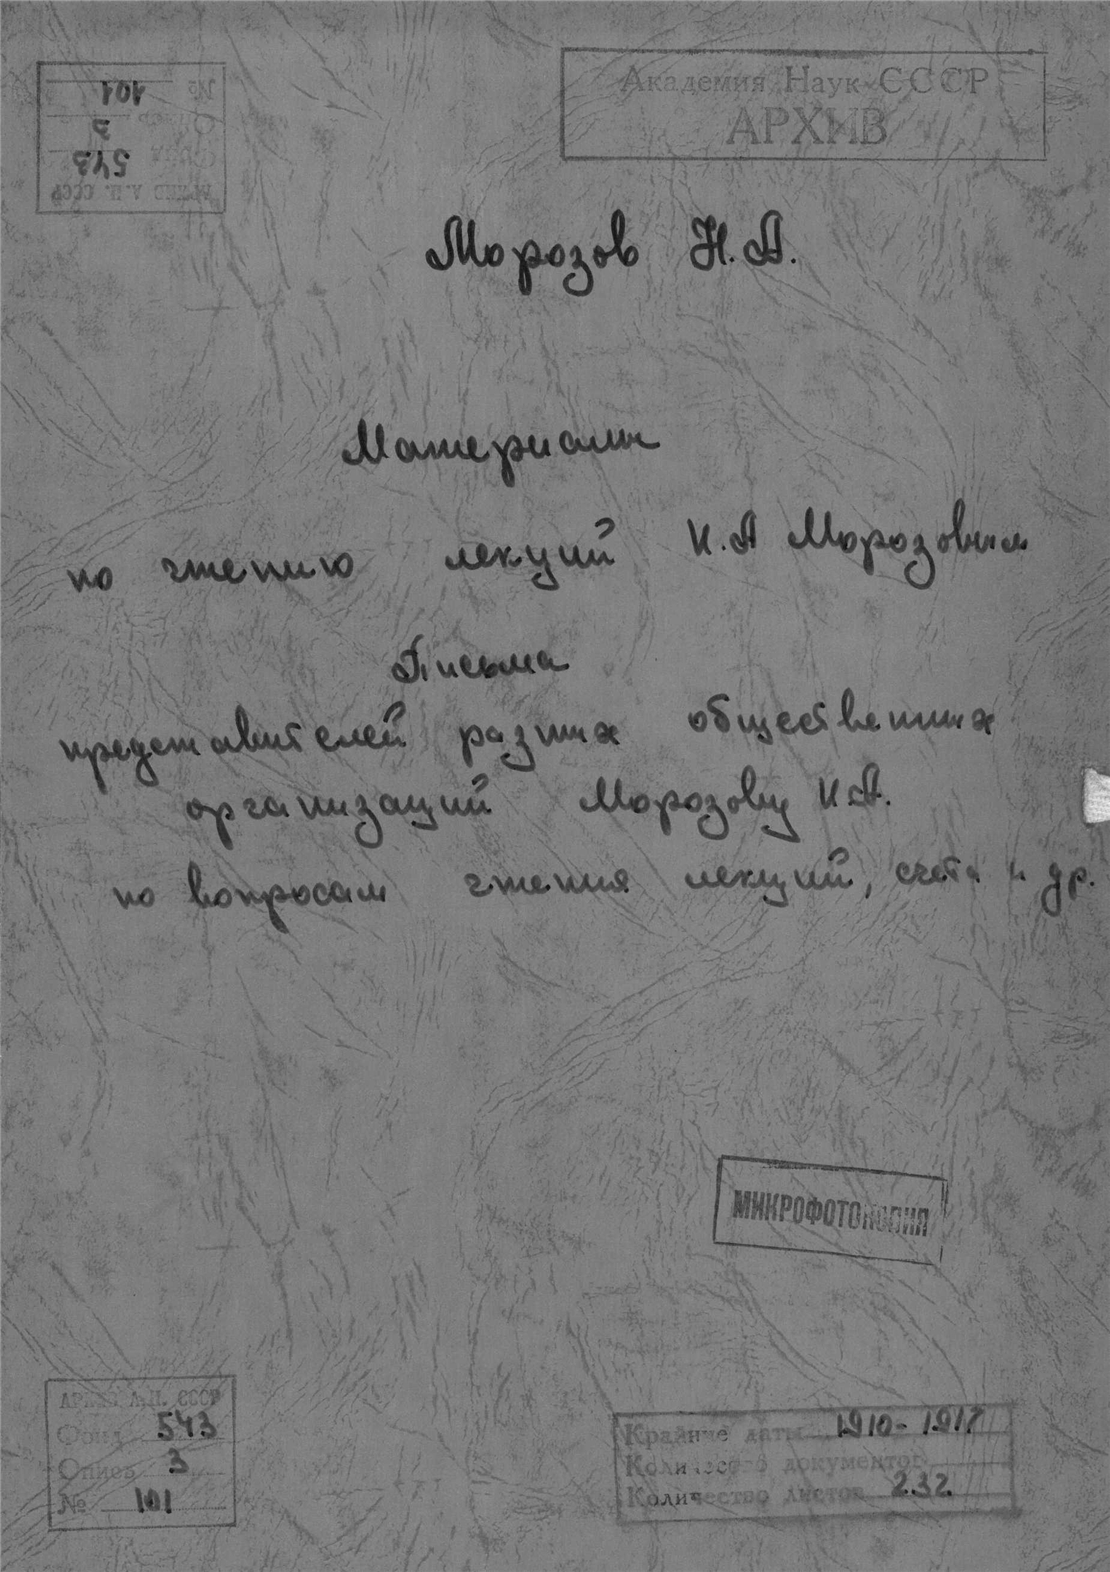 Академия Наук СССР
АРХИВ
№ 101
Опись 3
Фонд 543
АРХИВ А.Н. СССР
Морозов Н.А.
Материалы
по чтению лекций Н.А Морозовым
Письма
представителей разных общественных
организаций Морозову Н.А.
по вопросам чтения лекций, счета и др.
МИКРОФОТОКОПИЯ
АРХИВ А.Н. СССР
Фонд 543
Опись 3
№ 101
Крайние даты 1910-1917
Количество документов
Количество листов 232